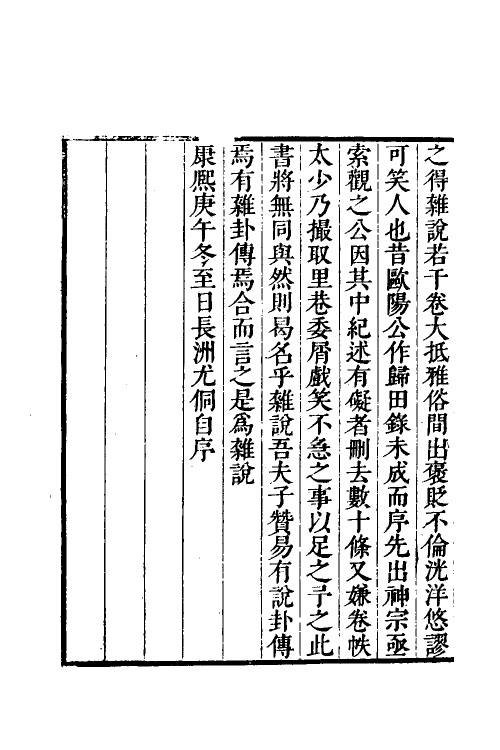 之得雜說若干卷大抵雅俗間出褒貶不倫洸洋悠謬
可笑人也昔歐陽公作歸田錄未成而序先出神宗亟
索觀之公因其中紀述有礙者刪去數十條又嫌卷帙
太少乃撮取里巷委屑戲笑不急之事以足之予之此
書將無同與然則曷名乎雜說吾夫子贊易有說卦傳
焉有雜卦傳焉合而言之是爲雜說
康熙庚午冬至日長洲尤侗自序